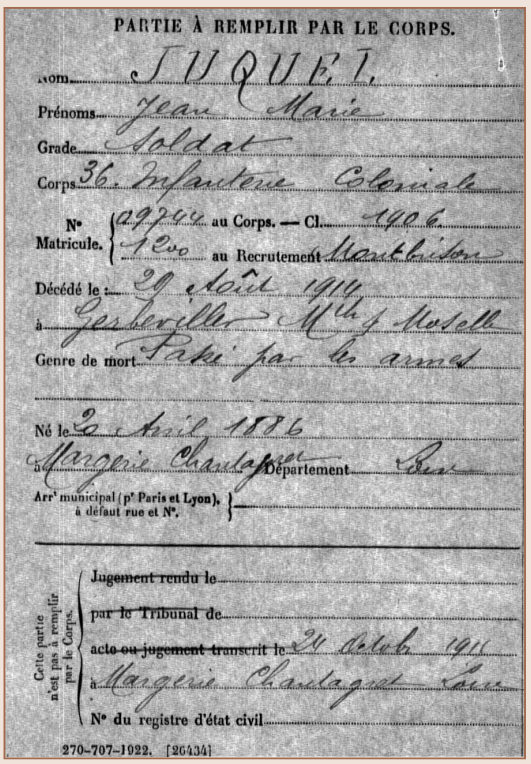 PARTIE À REMPLIR PAR LE CORPS.
Nom JUQUEL
Prénoms Jean Marie
Grade Soldat
Corps 36. Infanterie Coloniale
N° Matricule. { 09744 au Corps. — Cl. 1906.
1200 au Recrutement Montbrison
Décédé le : 29 Août 1914
à Gerbeviller Mthe Moselle
Genre de mort par les armes
Né le 20 Avril 1886
à Margerie Chantagret Département Loire
Arrt municipal (pr Paris et Lyon),
à défaut rue et N°.
Cette partie n'est pas à remplir par le Corps.
Jugement rendu le
par le Tribunal de
acte ou jugement transcrit le 24 Octob 1911
à Margerie Chantagret Loire
N° du registre d'état civil
270-707-1922. [26434]